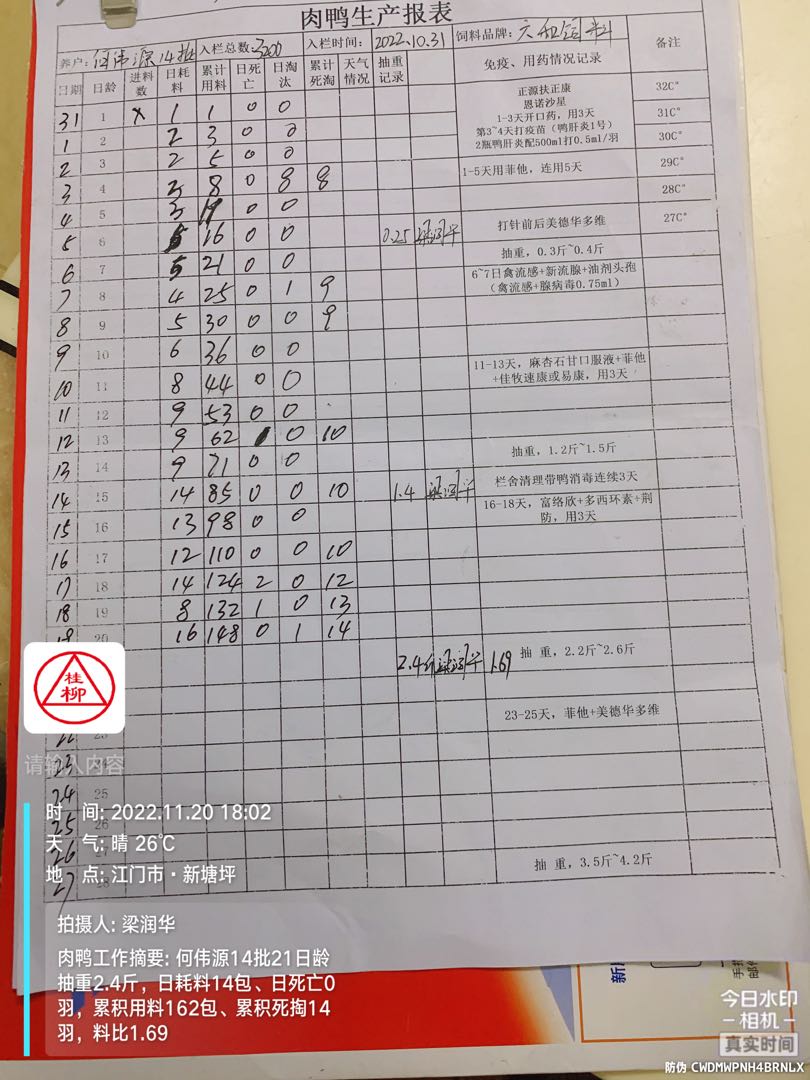 肉鸭生产报表
养户：何伟源14批 入栏总数：3200 入栏时间：2022.10.31 饲料品牌：六和饲料 备注
日期 日龄 进料数 日耗料 累计用料 日死亡 日淘汰 累计死淘 天气情况 抽重记录 免疫、用药情况记录
31 1 x 1 1 0 0 正源扶正康 32C°
恩诺沙星
1-3天开口药，用3天 31C°
1 2 2 3 0 0 第3~4天打疫苗（鸭肝炎1号）
2瓶鸭肝炎配500ml打0.5ml/羽 30C°
2 3 2 5 0 0
3 4 8 0 8 8 1-5天用菲他，连用5天 29C°
28C°
4 5 0 0
5 6 5 16 0 0 0.25 打针前后美德华多维 27C°
6 7 5 21 0 0 抽重，0.3斤~0.4斤
7 8 4 25 0 1 9 6~7日禽流感+新流腺+油剂头孢
（禽流感+腺病毒0.75ml）
8 9 5 30 0 0 9
9 10 6 36 0 0
10 11 8 44 0 0 11-13天，麻杏石甘口服液+菲他
+佳牧速康或易康，用3天
11 12 9 53 0 0
12 13 9 62 1 0 10
13 14 9 71 0 0 抽重，1.2斤~1.5斤
14 15 14 85 0 0 10 1.4 栏舍清理带鸭消毒连续3天
15 16 13 98 0 0 16-18天，富络欣+多西环素+荆
防，用3天
16 17 12 110 0 0 10
17 18 14 124 2 0 12
18 19 8 132 1 0 13
19 20 16 148 0 1 14
2.4斤 1.69 抽 重，2.2斤~2.6斤
23-25天，菲他+美德华多维
22 23
23 24
24 25
25 26
26 27
27 抽 重，3.5斤~4.2斤
桂柳
请输入内容
时 间: 2022.11.20 18:02
天 气: 晴 26℃
地 点: 江门市·新塘坪
拍摄人: 梁润华
肉鸭工作摘要: 何伟源14批21日龄
抽重2.4斤，日耗料14包、日死亡0
羽，累积用料162包、累积死掏14
羽，料比1.69
今日水印
-相机-
真实时间
防伪 CWDMWPNH4BRNLX